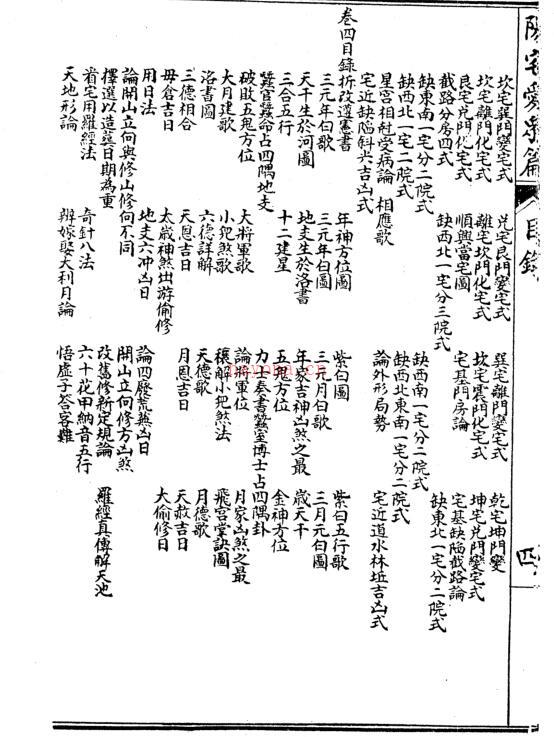 陽宅愛眾篇 目錄 四
坎宅巽門變宅式 兌宅艮門變宅式 巽宅離門變宅式 乾宅坤門變
坎宅離門化宅式 離宅坎門化宅式 坎宅雲門化宅式 坤宅兌門變宅式
艮宅兌門化宅式 順興富宅圖 宅基門房論 宅基缺陷截路論
截路分房四式 缺西北一宅分三院式 缺東北一宅分二院式
缺東南一宅分二院式 缺西南一宅分二院式
缺西北一宅二院式 缺西北東南一宅分二院式
星宮相尅受病論 相應歌 論外形局勢 宅近道水林坵吉凶式
宅近缺陷斜尖吉凶式
卷四目錄 折改遵憲書
三元年白歌 年神方位圖 紫白圖 紫白五行歌
天干生於河圖 三元年白圖 三元月白歌 三月元白圖
三合五行 地支生於洛書 年家吉神凶煞之最 歲天干
蠶官蠶命占四隅地支 十二建星 五鬼方位 金神方位
破敗五鬼方位 大將軍歌 力士奏書蠶室博士占四隅卦
大月建歌 小兒煞歌 論將軍位 月家凶煞之最
洛書圖 六德詳解 穰解小兒煞法 飛宮掌訣圖
三德相合 天恩吉日 天德歌 月德歌
母倉吉日 太歲神煞出游偷修 月恩吉日 天赦吉日
用日法 地支六冲凶日 大偷修日
論開山立向與修山修向不同 論四廢荒蕪凶日
擇選以造葬日期為重 開山立向修方凶煞
看宅用羅經法 奇針八法 改舊修新定規論 羅經真傳解天池
天地形論 辨嫁娶大利月論 六十花甲納音五行
悟虛子答客難
nayona.cn